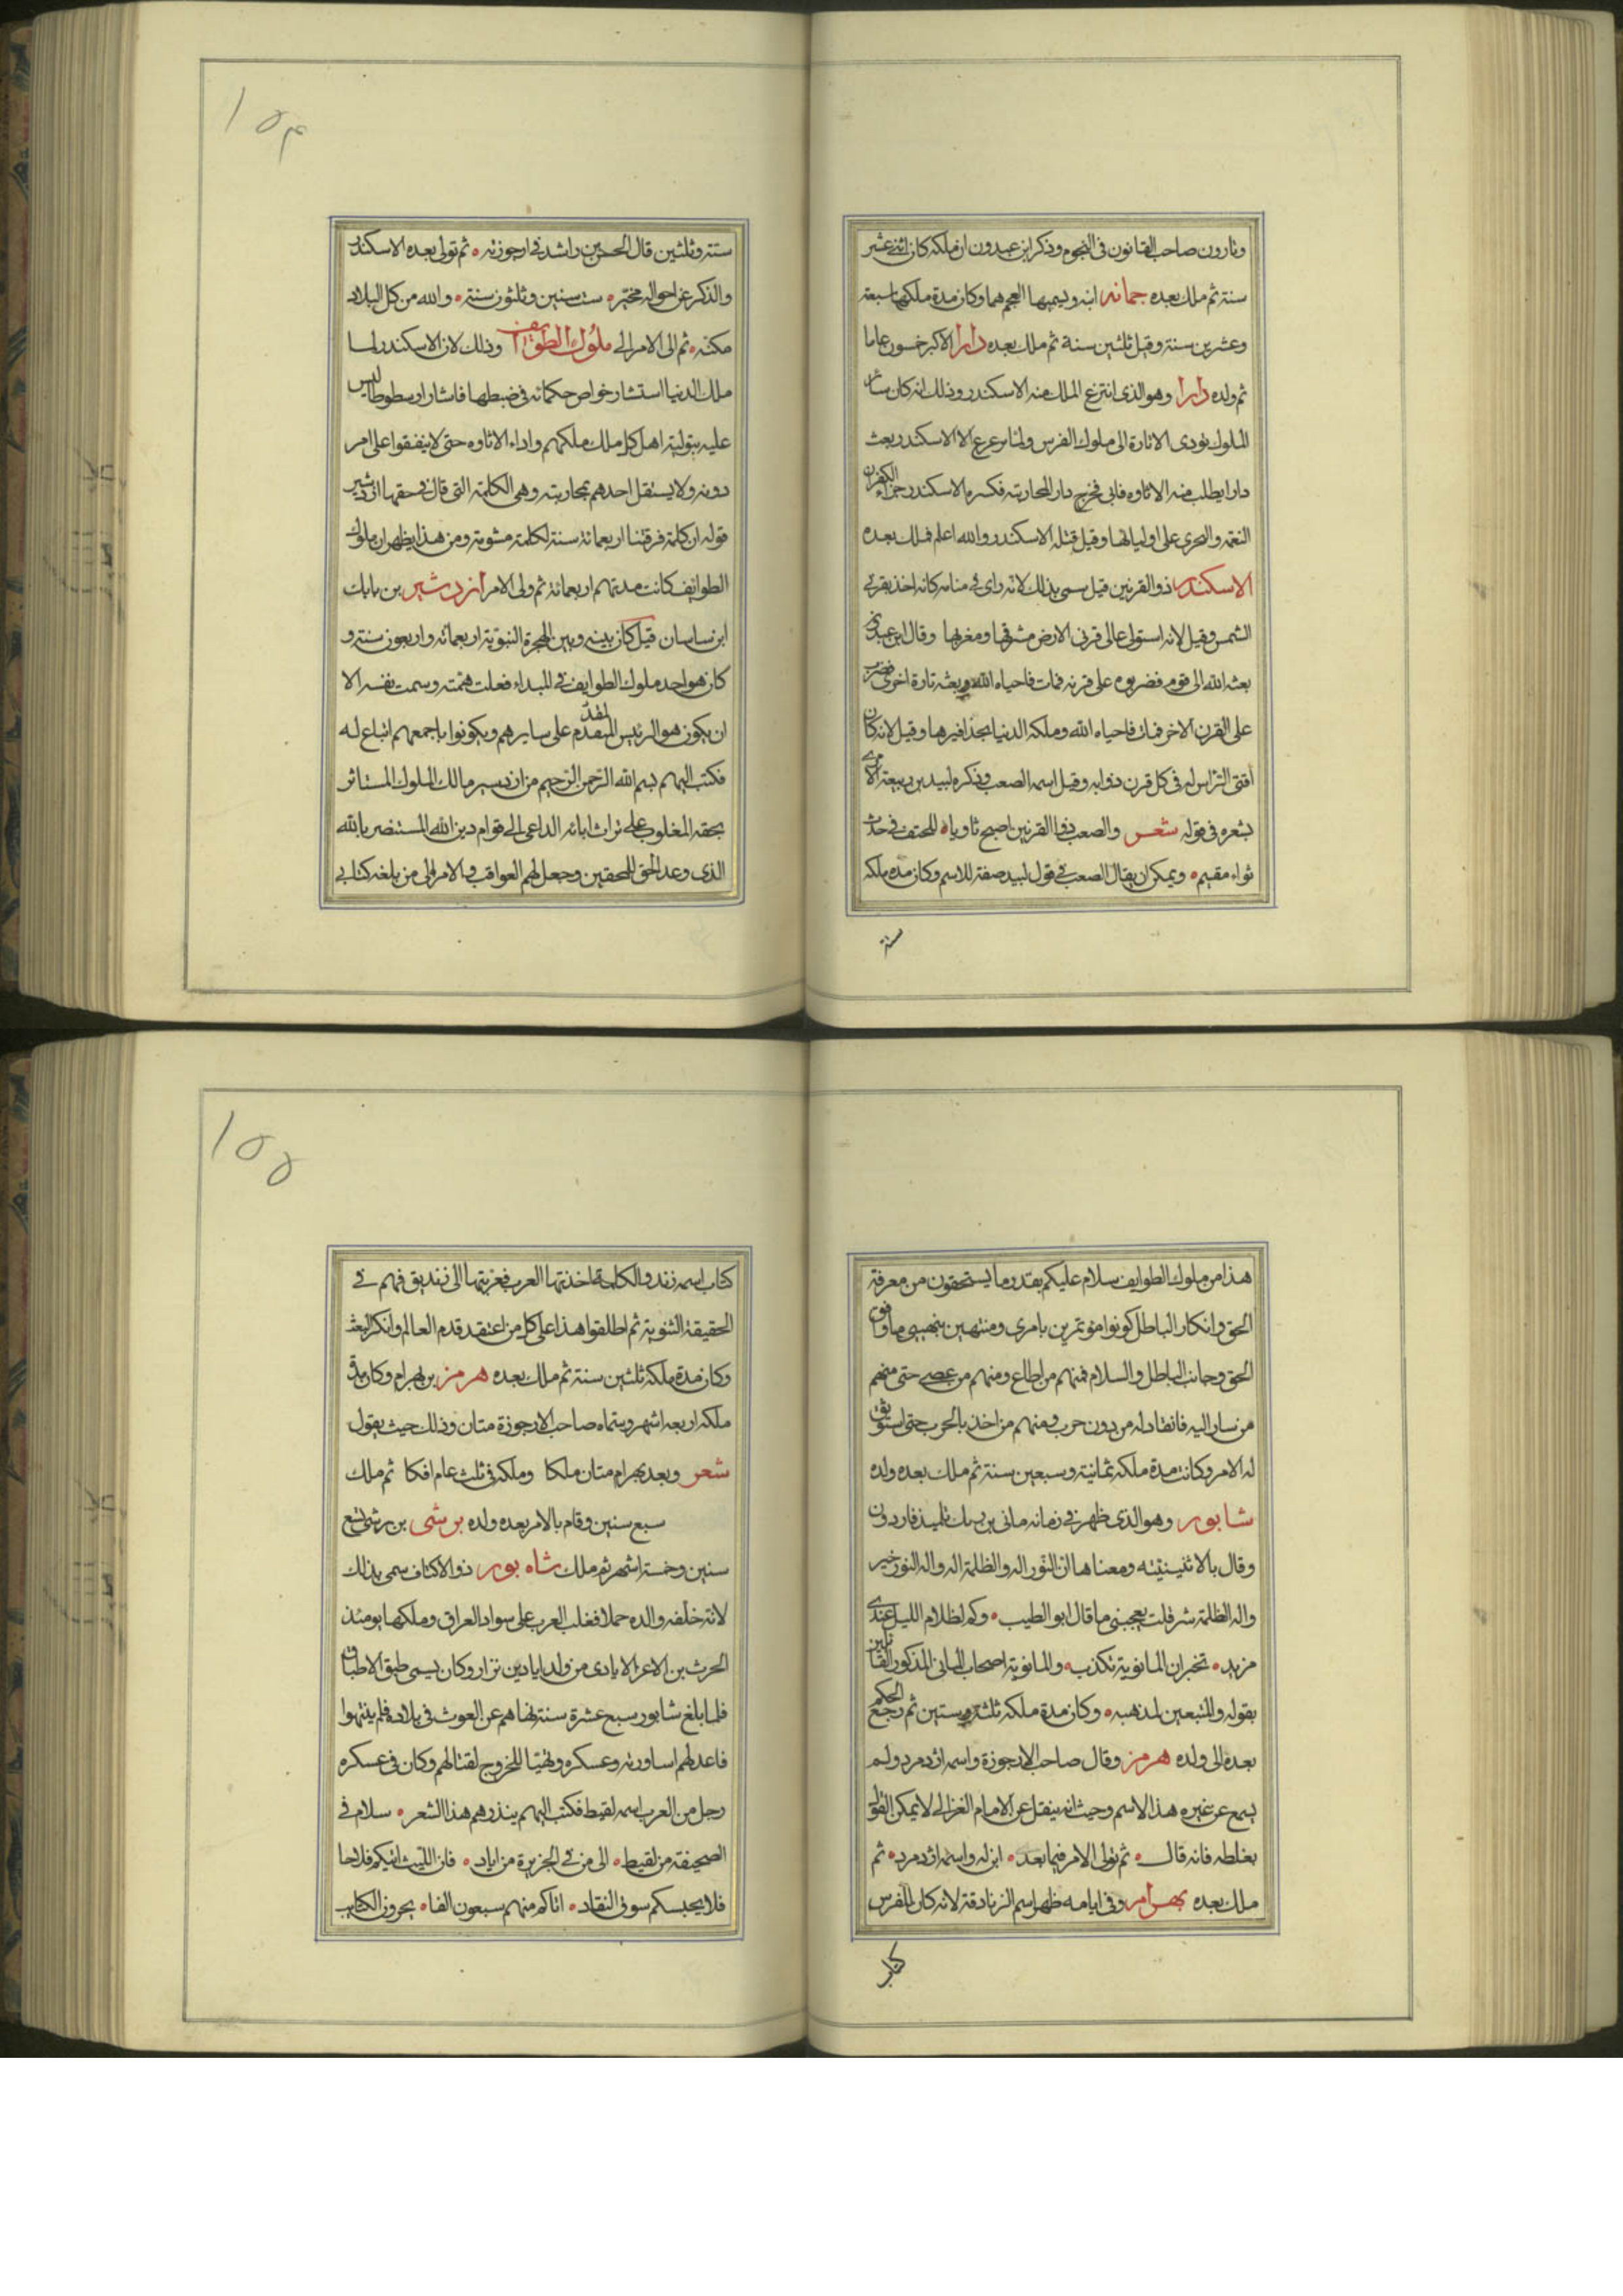 وثارون صاحب القانون فى النجوم وذكر ابن عبدون ان ملكه كان اثنى عشر
سنة ثم ملك بعده جمانه ابنه ويسميها العجم هما وكان مدة ملكها سبعة
وعشرين سنة وقيل ثلثين سنة ثم ملك بعده دارا الاكبر خمسون عاما
ثم ولده دارا وهو الذى انتزع الملك منه الاسكندر وذلك انه كان سائر
الملوك تؤدى الاتاوة الى ملوك الفرس الاسكندر بعث
دارا يطلب منه الاتاوه فابى فخرج دارا لمحاربته فكسره الاسكندر جزاء الكفران
النعمه والتحرى على اوليائها وقيل قتله الاسكندر والله اعلم فملك بعده
الاسكندر ذو القرنين قيل سمى بذلك لانه راى فى منامه كانه اخذ بقرنى
الشمس وقيل لانه استولى على قرنى الارض مشرقها ومغربها وقال ابن عبدون
بعثه الله الى قوم فضربوه على قرنه فمات فاحياه الله وبعثه تارة اخرى فضرب
على القرن الاخر فمات فاحياه الله وملكه الدنيا بحذافيرها وقيل لانه كان
الراس له فى كل قرن ذوابه وقيل اسمه الصعب وذكره لبيد بن ربيعة
بشعره فى قوله شعر والصعب ذوا القرنين اصبح ثاويا للحتف فى حدث
ثواء مقيم ويمكن ان يقال الصعب فى قول لبيد صفة للاسم وكان مده ملكه
سته
١٥٤
ستة وثلثين قال الحسن بن راشد فى ارجوزته ثم تولى بعده الاسكندر
والذكر عن احواله مختبر ست سنين وثلثون سنة والله من كل البلاد
مكنه ثم الى الامر الى ملوك الطوايف وذلك لان الاسكندر لما
ملك الدنيا استشار خواص حكمائه فى ضبطها فاشار ارسطوطاليس
عليه بتولية اهل كل ملك ملكهم واداء الاتاوه حتى لا يتفقوا على امر
دونه ولا يستقل احدهم بمحاربته وهى الكلمة التى قال فى حقها ازدشير
قوله ان كلمة فرقتنا اربعمائة سنة لكلمة مشومة ومن هذا يظهر ان ملوك
الطوايف كانت مدتهم اربعمائة ثم ولى الامر ازدشير بن بابك
ابن ساسان قيل كان بينه وبين الهجرة النبوية اربعمائه واربعون سنة و
كان هو احد ملوك الطوايف فى المبداء فعلت همته وسمت نفسه الا
ان يكون هو الرئيس المتقدم على سايرهم ويكونوا باجمعهم اتباع له
فكتب اليهم بسم الله الرحمن الرحيم من ازدسير مالك الملوك المستاثر
بحقه المغلوب على تراث ابائه الداعى الى قوام دين الله المستنصر بالله
الذى وعد الحق للمحقين وجعل لهم العواقب فى الامر الى من بلغه كتابى
هذا من ملوك الطوايف سلام عليكم بقدر ما يستحقون من معرفة
الحق وانكار الباطل كونوا مؤتمرين بامرى ومنتهين بنهيى
الحق وجانب الباطل والسلام فمنهم من اطاع ومنهم من عصى حتى منهم
من سار اليه فانقاد له من دون حرب ومنهم من اخذ بالحرب حتى استوثق
له الامر وكانت مدة ملكه ثمانية وسبعين سنة ثم ملك بعده ولده
شابور وهو الذى ظهر فى زمانه مانى بن تلميذ فاردون
وقال بالاثنينيته ومعناها ان النور اله والظلمة اله واله النور خير
واله الظلمة شر قلت يعجبنى ما قال ابو الطيب وكم لظلام الليل عندى
مزيد تخبر ان المانوية تكذب والمانوية اصحاب المانى المذكور القائلين
بقوله والمتبعين لمذهبه وكان مدة ملكه ثلثة وستين ثم رجع الحكم
بعده الى ولده هرمز وقال صاحب الارجوزة واسمه ازدمرد ولم
يسمع عن غيره هذا الاسم وحيث انه ينقل عن الامام الغزالى لا يمكن القول
بغلطه فانه قال ثم تولى الامر فيما بعد ابن له واسمه ازدمرد ثم
ملك بعده بهرام وفى ايامه ظهر اسم الزنادقة لانه كان للفرس
كتاب
١٥٥
كتاب اسمه زند والكلمة اخذتها العرب فعربتها الى زنديق فهم فى
الحقيقة الثنوية ثم اطلقوا هذا على كل من اعتقد قدم العالم وانكر البعث
وكان مدة ملكه ثلثين سنة ثم ملك بعده هرمز بن بهرام وكان مدة
ملكه اربعه اشهر وسماه صاحب الارجوزة متان وذلك حيث يقول
شعر وبعد بهرام متان ملكا وملكه فى ثلث عام افكا ثم ملك
سبع سنين وقام بالامر بعده ولده برشى بن تسع
سنين وخمسة اشهر ثم ملك شاه بور ذو الاكتاف سمى بذلك
لانه خلفه والده حملا فغلب العرب على سواد العراق وملكها يومئذ
الحرث بن الاغر الايادى من ولد اياد بن نزار وكان يسمى طبق الاطباق
فلما بلغ شابور سبع عشرة سنة نهاهم عن العوث فى بلاده فلم ينتهوا
فاعد لهم اساورته وعسكره وتهيا للخروج لقتالهم وكان فى عسكره
رجل من العرب اسمه لقيط فكتب اليهم ينذرهم هذا الشعر سلام فى
الصحيفة من لقيط الى من فى الجزيرة من اياد فان الليث اتيكم
فلا يحبسكم سوق النقاد اتاكم منهم سبعون الفا يجرون الكتايب